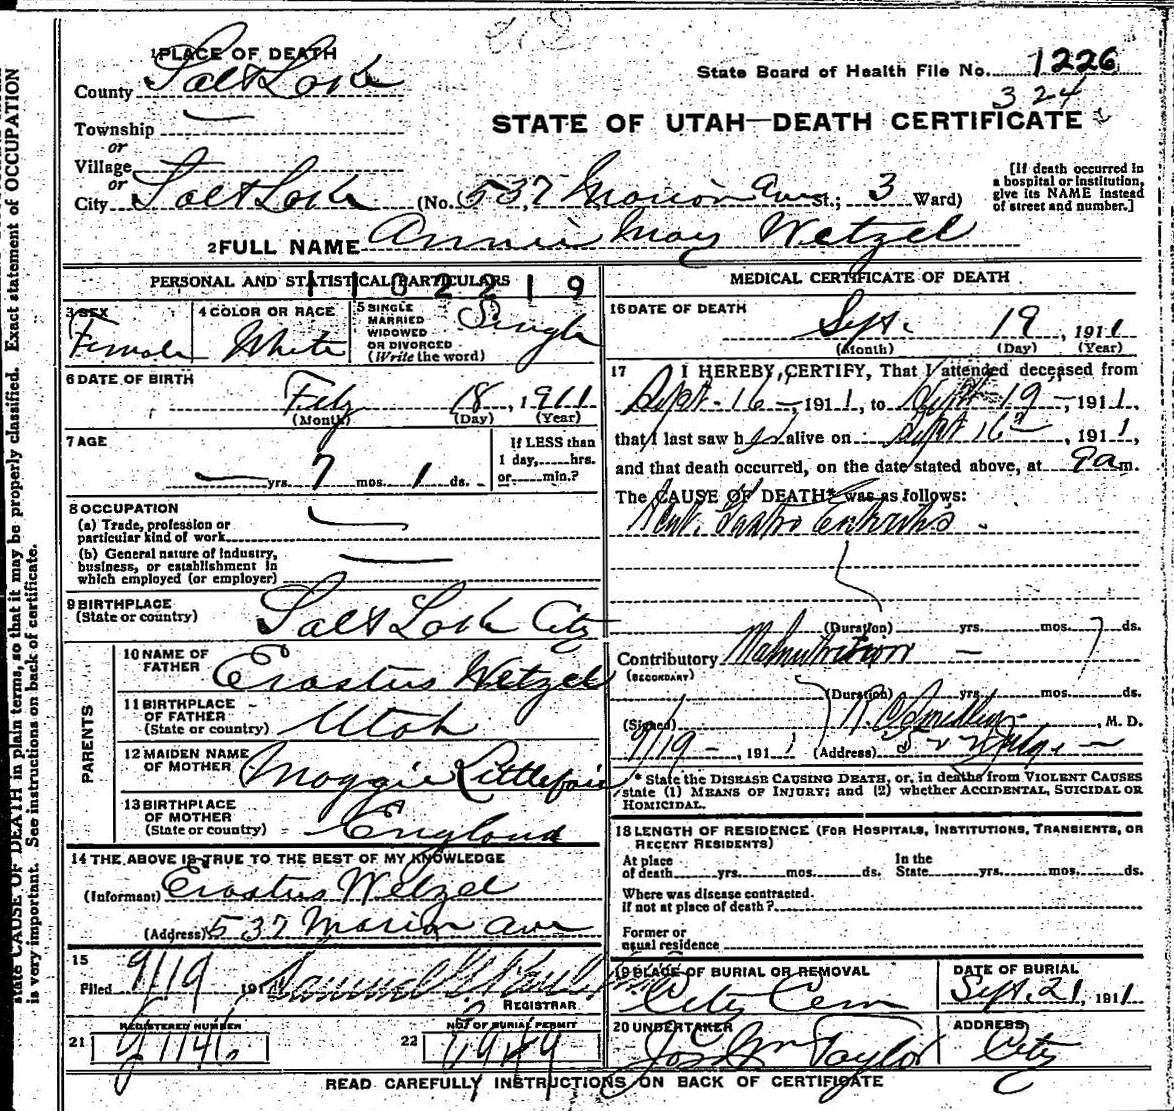 1 PLACE OF DEATH
County Salt Lake
State Board of Health File No. 1226
324
Township
or
STATE OF UTAH—DEATH CERTIFICATE
Village
or
City Salt Lake (No. 537 Marion Ave St.; 3 Ward)
[If death occurred in
a hospital or institution,
give its NAME instead
of street and number.]
2 FULL NAME Annie May Wetzel
PERSONAL AND STATISTICAL PARTICULARS
1102219
3 SEX
Female
4 COLOR OR RACE
White
5 SINGLE
MARRIED
WIDOWED
OR DIVORCED
(Write the word)
Single
6 DATE OF BIRTH
Feby 18, 1911
(Month) (Day) (Year)
7 AGE
— yrs. 7 mos. 1 ds.
If LESS than
1 day,......hrs.
or......min.?
8 OCCUPATION
(a) Trade, profession or
particular kind of work
(b) General nature of industry,
business, or establishment in
which employed (or employer)
9 BIRTHPLACE
(State or country) Salt Lake City
PARENTS
10 NAME OF
FATHER Erastus Wetzel
11 BIRTHPLACE
OF FATHER
(State or country) Utah
12 MAIDEN NAME
OF MOTHER Maggie Littlefair
13 BIRTHPLACE
OF MOTHER
(State or country) England
14 THE ABOVE IS TRUE TO THE BEST OF MY KNOWLEDGE
(Informant) Erastus Wetzel
(Address) 537 Marion Ave
15
Filed 9/19 191 Samuel G. Paul
REGISTRAR
REGISTERED NUMBER
21
NO. OF BURIAL PERMIT
22
MEDICAL CERTIFICATE OF DEATH
16 DATE OF DEATH
Sept. 19, 1911
(Month) (Day) (Year)
17 I HEREBY CERTIFY, That I attended deceased from
Sept. 16 —, 1911, to Sept 19 —, 1911,
that I last saw her alive on Sept 16, 1911,
and that death occurred, on the date stated above, at 9 a m.
The CAUSE OF DEATH* was as follows:
Acute Gastro Enteritis
(Duration) yrs. mos. 7 ds.
Contributory Malnutrition —
(SECONDARY)
(Duration) yrs. mos. ds.
(Signed) M. D.
9/19 —, 1911 (Address) Judge
* State the DISEASE CAUSING DEATH, or, in deaths from VIOLENT CAUSES
state (1) MEANS OF INJURY; and (2) whether ACCIDENTAL, SUICIDAL OR
HOMICIDAL.
18 LENGTH OF RESIDENCE (FOR HOSPITALS, INSTITUTIONS, TRANSIENTS, OR
RECENT RESIDENTS)
At place
of death......yrs......mos......ds.
In the
State......yrs......mos......ds.
Where was disease contracted.
if not at place of death?
Former or
usual residence
19 PLACE OF BURIAL OR REMOVAL
City Cem
DATE OF BURIAL
Sept. 21, 1911
20 UNDERTAKER
Jos Wm Taylor
ADDRESS
City
READ CAREFULLY INSTRUCTIONS ON BACK OF CERTIFICATE
state CAUSE OF DEATH in plain terms, so that it may be properly classified. Exact statement of OCCUPATION
is very important. See instructions on back of certificate.